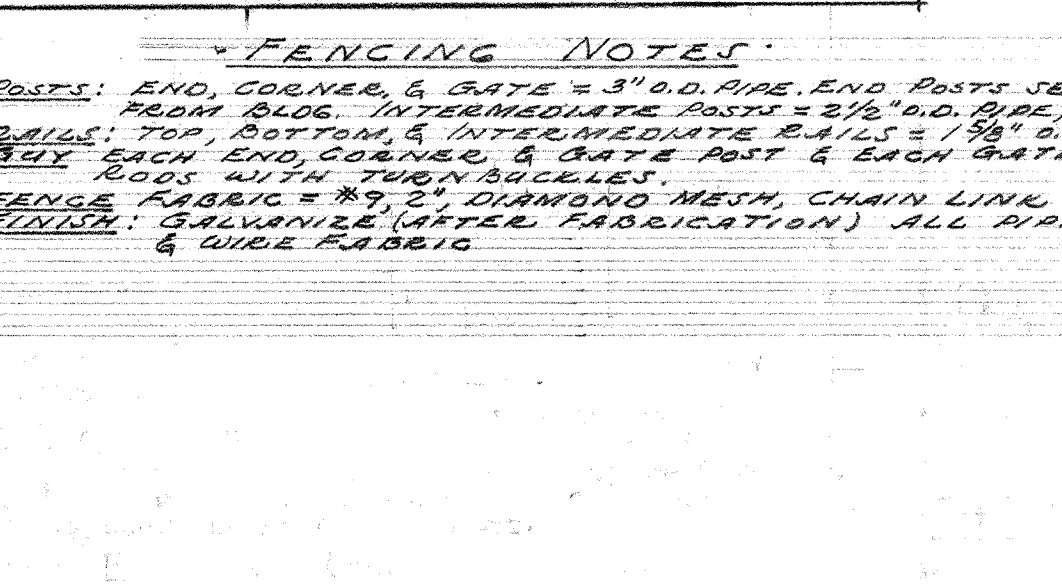 FENCING NOTES
POSTS: END, CORNER, & GATE = 3" O.D. PIPE. END POSTS SE
FROM BLDG. INTERMEDIATE POSTS = 2 1/2" O.D. PIPE,
RAILS: TOP, BOTTOM, & INTERMEDIATE RAILS = 1 5/8" O.
GUY EACH END, CORNER & GATE POST & EACH GAT
RODS WITH TURNBUCKLES.
FENCE FABRIC = #9, 2", DIAMOND MESH, CHAIN LINK
FINISH: GALVANIZE (AFTER FABRICATION) ALL PIP
& WIRE FABRIC